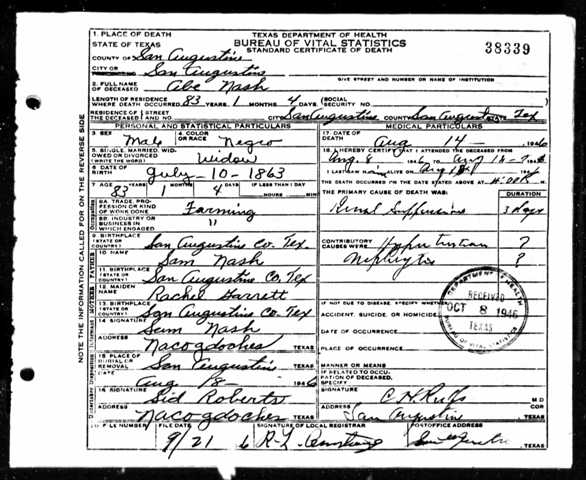 1. PLACE OF DEATH
STATE OF TEXAS
TEXAS DEPARTMENT OF HEALTH
BUREAU OF VITAL STATISTICS
STANDARD CERTIFICATE OF DEATH
38339
COUNTY OF San Augustine
CITY OR San Augustine
GIVE STREET AND NUMBER OR NAME OF INSTITUTION
2. FULL NAME OF DECEASED Abe Nash
LENGTH OF RESIDENCE WHERE DEATH OCCURRED 83 YEARS 1 MONTHS 4 DAYS SOCIAL SECURITY NO.
RESIDENCE OF THE DECEASED STREET CITY San Augustine COUNTY San Augustine STATE Tex
PERSONAL AND STATISTICAL PARTICULARS
MEDICAL PARTICULARS
3. SEX Male 4. COLOR OR RACE Negro
17. DATE OF DEATH Aug 14 1946
5. SINGLE, MARRIED, WIDOWED OR DIVORCED (WRITE THE WORD) Widow
18. I HEREBY CERTIFY THAT I ATTENDED THE DECEASED FROM
Aug 8
6. DATE OF BIRTH July-10-1863
THE DEATH OCCURRED ON THE DATE STATED ABOVE AT
7. AGE 83 YEARS 1 MONTHS 4 DAYS IF LESS THAN 1 DAY HOURS MIN
THE PRIMARY CAUSE OF DEATH WAS: DURATION
8A. TRADE PROFESSION OR KIND OF WORK DONE Farming
3 days
8B. INDUSTRY OR BUSINESS IN WHICH ENGAGED "
9. BIRTHPLACE (STATE OR COUNTRY) San Augustine Co. Tex.
CONTRIBUTORY CAUSES WERE ?
10. NAME Sam Nash
?
11. BIRTHPLACE (STATE OR COUNTRY) San Augustine Co. Tex
12. MAIDEN NAME Rachel Garrett
IF NOT DUE TO DISEASE, SPECIFY WHETHER
13. BIRTHPLACE (STATE OR COUNTRY) San Augustine Co. Tex
ACCIDENT, SUICIDE, OR HOMICIDE
14. SIGNATURE Sam Nash
DATE OF OCCURRENCE
ADDRESS Nacogdoches TEXAS
PLACE OF OCCURRENCE
DEPARTMENT OF HEALTH
RECEIVED
OCT 8 1946
TEXAS
BUREAU OF VITAL STATISTICS
15. PLACE OF BURIAL OR REMOVAL San Augustine TEXAS
MANNER OR MEANS
DATE Aug 18- 1946
IF RELATED TO OCCUPATION OF DECEASED, SPECIFY
16. SIGNATURE Sid Roberts
M D
ADDRESS Nacogdoches TEXAS
ADDRESS San Augustine TEXAS
FILE NUMBER FILE DATE 9/21 6 SIGNATURE OF LOCAL REGISTRAR POSTOFFICE ADDRESS TEXAS
NOTE THE INFORMATION CALLED FOR ON THE REVERSE SIDE
Occupation
FATHER
MOTHER
Informant